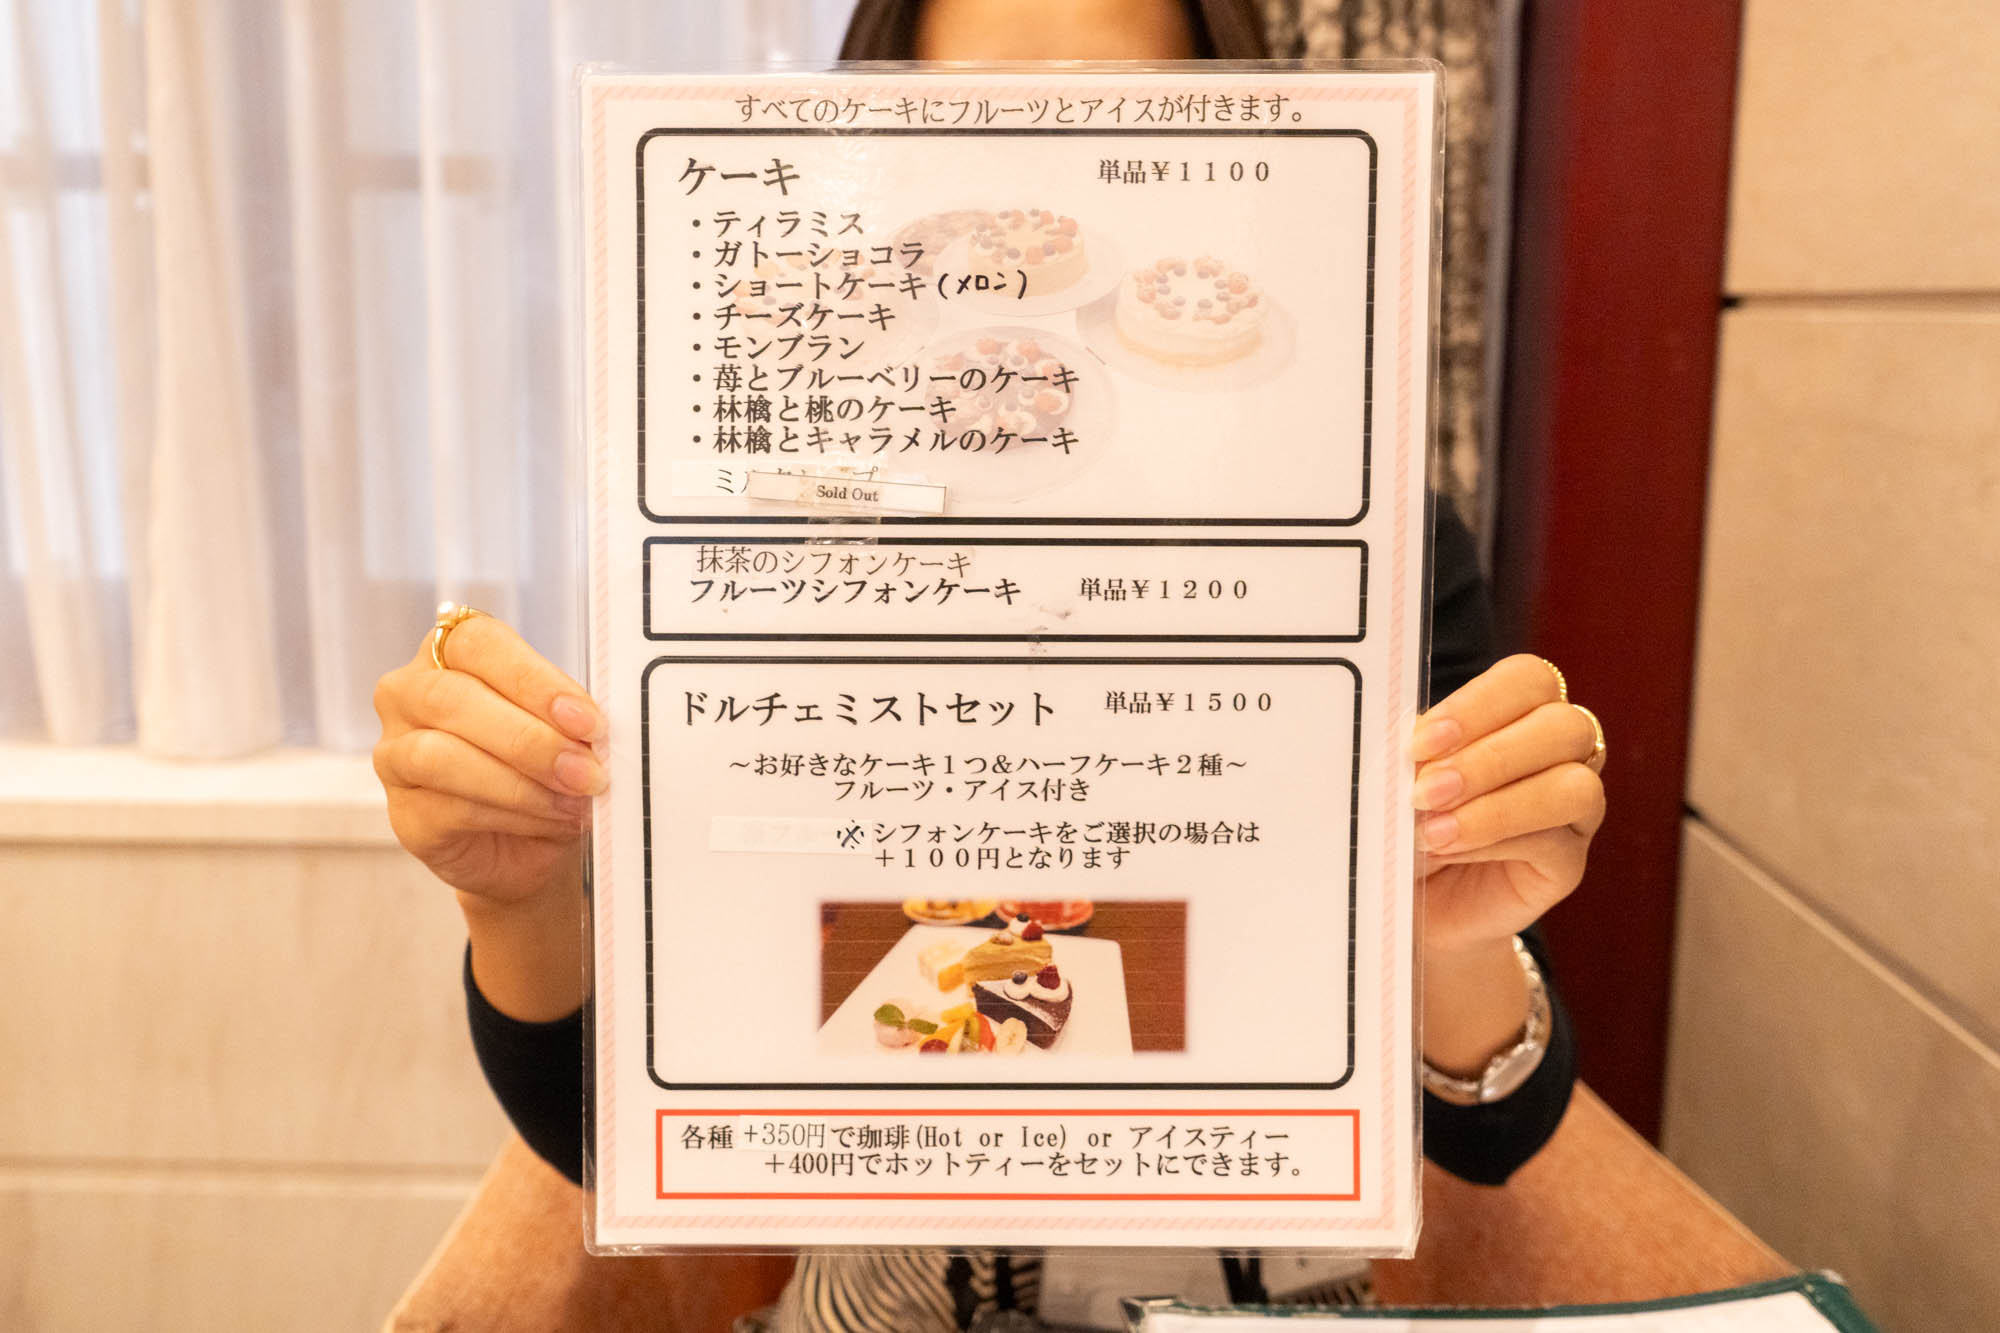 すべてのケーキにフルーツとアイスが付きます。
ケーキ 単品¥1100
・ティラミス
・ガトーショコラ
・ショートケーキ(メロン)
・チーズケーキ
・モンブラン
・苺とブルーベリーのケーキ
・林檎と桃のケーキ
・林檎とキャラメルのケーキ
Sold Out
抹茶のシフォンケーキ
フルーツシフォンケーキ 単品¥1200
ドルチェミストセット 単品¥1500
～お好きなケーキ1つ&ハーフケーキ2種～
フルーツ・アイス付き
※シフォンケーキをご選択の場合は
+100円となります
各種 +350円で珈琲(Hot or Ice) or アイスティー
+400円でホットティーをセットにできます。